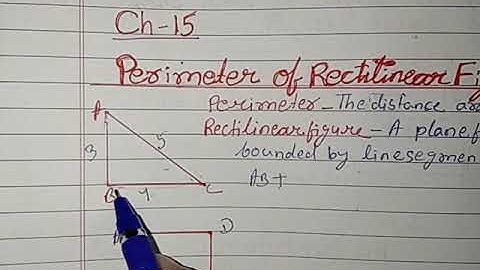 Ch-15
Perimeter of Rectilinear Fig
Perimeter - The distance
Rectilinear figure - A plane
bounded by line segmen
A
3
5
AB+
B
4
C
D